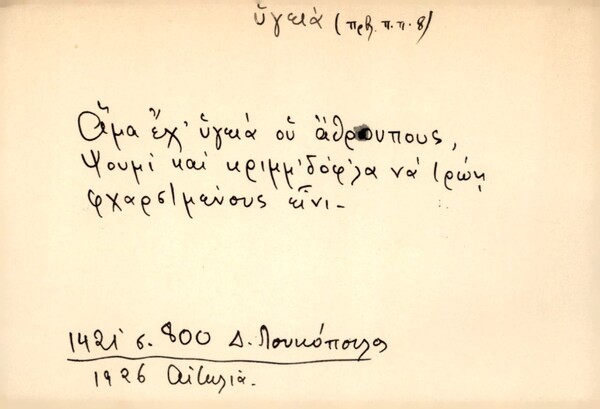 ὑγειά (πρβ. π.π. 8)
Ἅμα ἔχ' ὑγειά οὑ ἄθρουπους,
ψουμί καί κριμμ'δόφ'λα νά τρώῃ
φχαρστ'μένους εἶνι.
1421 σ. 800 Δ. Λουκόπουλος
1926 Αἰτωλία.